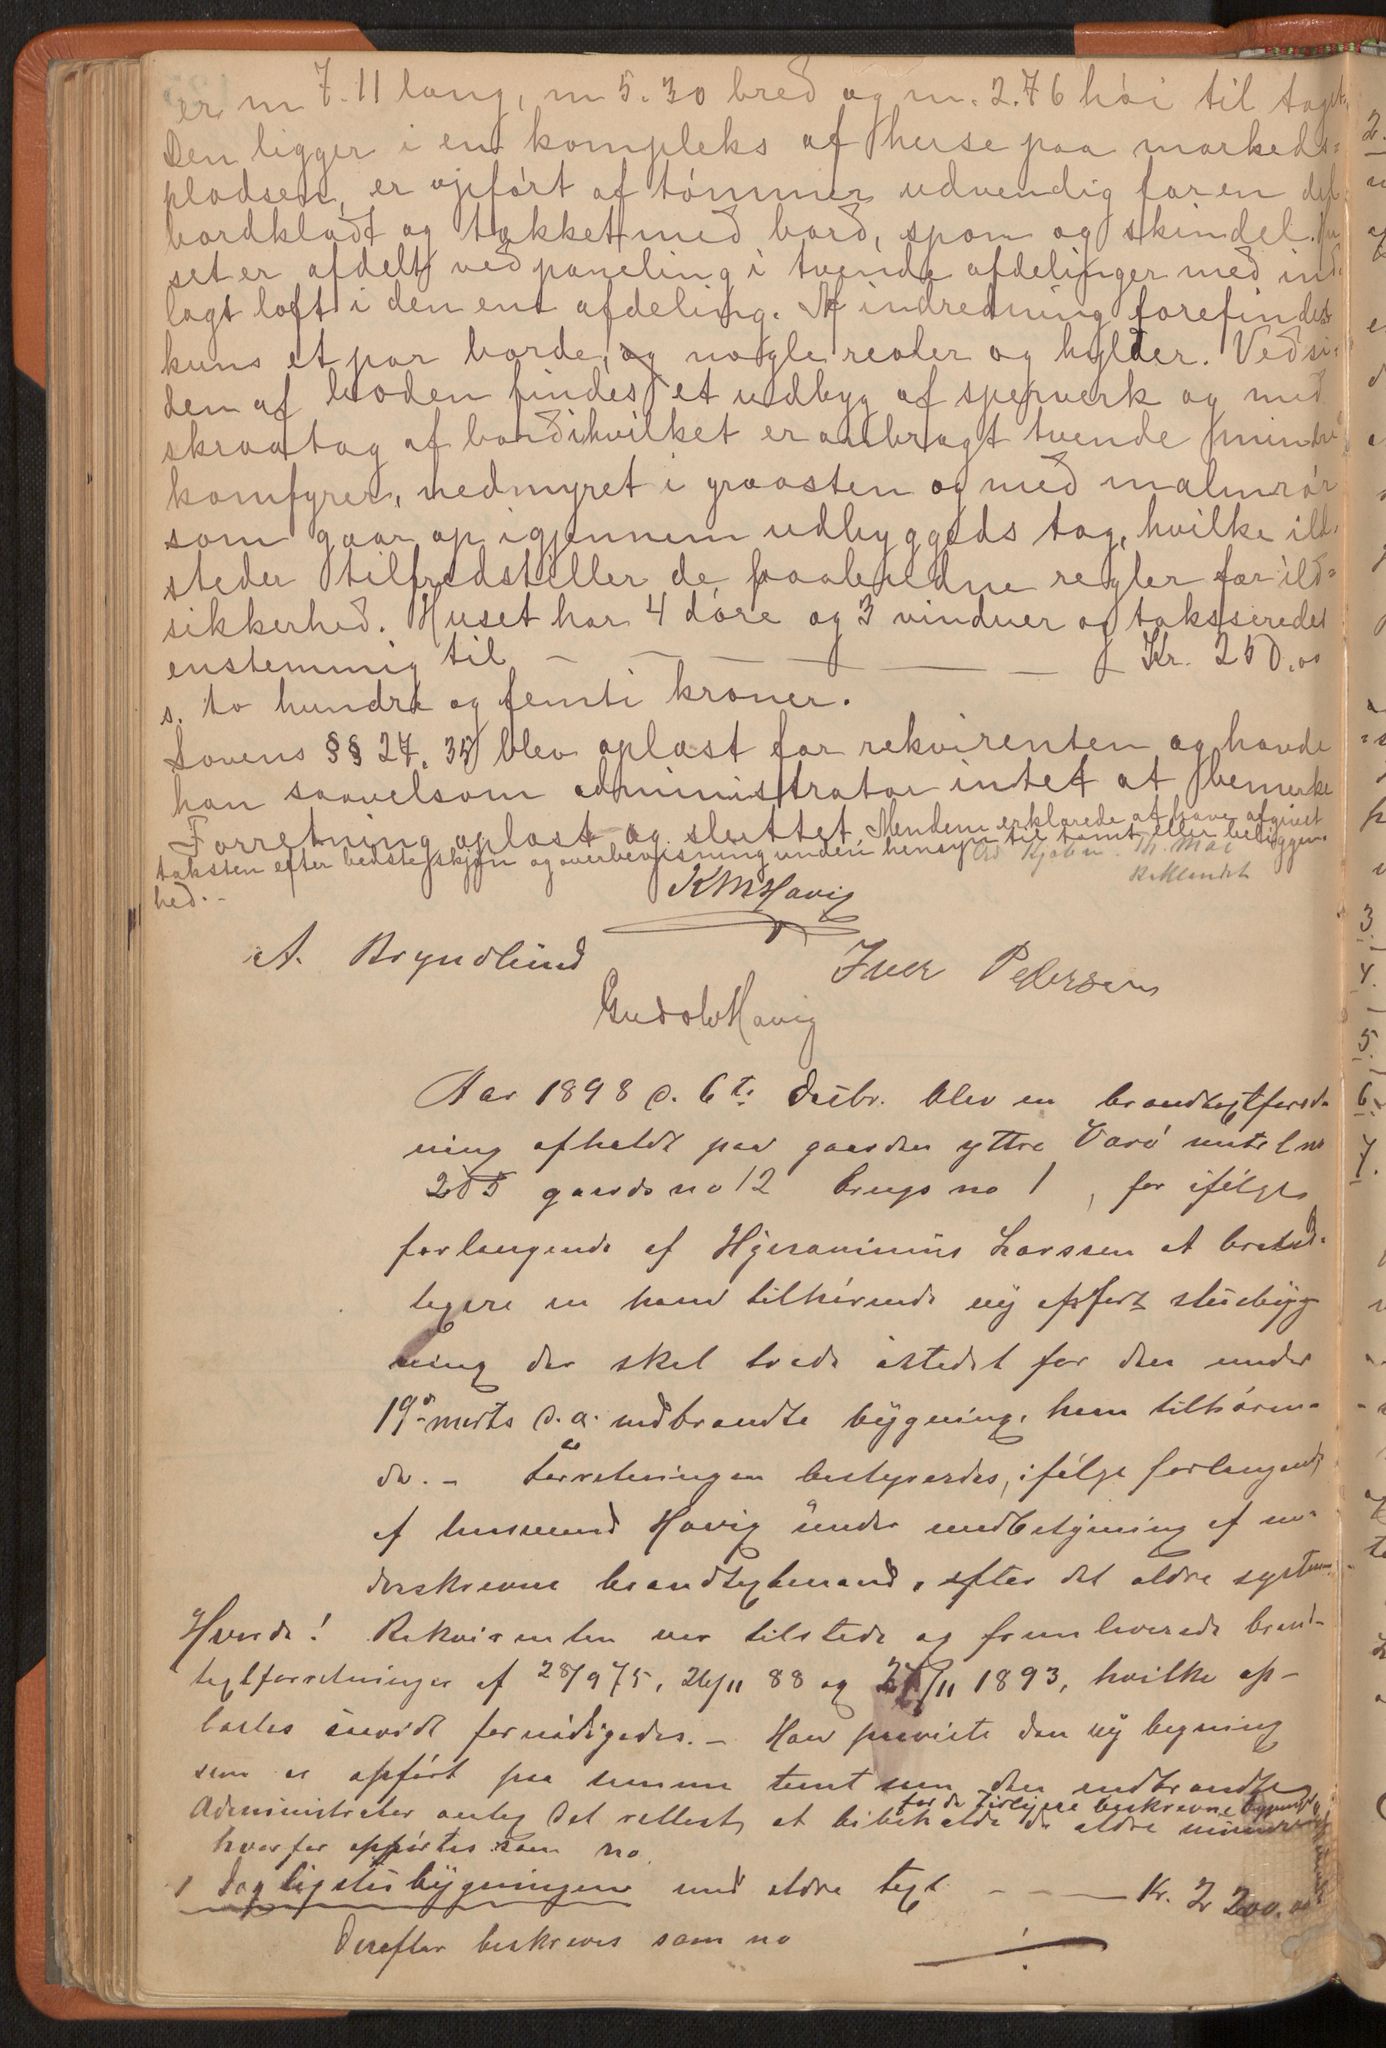 er m 7.11 lang, m 5.30 bred og m. 2.76 høi til taget.
Den ligger i en kompleks af huse paa markeds=
pladsen, er opført af tømmer udvendig for en del
bordklædt og tækket med bord, spon og skindel. Hu
set er afdelt ved paneling i tvende afdelinger med ind
lagt loft i den ene afdeling. Af indredning forefindes
kuns et par borde, og nogle reoler og hylder. Ved si=
den af boden findes et udbyg af sperverk og med
skraatag af bord i hvilket er anbragt tvende mindre
komfyrer, nedmyret i graasten og med malmrør
som gaar op igjennem udbyggeds tag, hvilke ild=
steder tilfredstiller de paabudne regler for ild=
sikkerhed. Huset har 4 døre og 3 vinduer og taksseredes
enstemmig til — — — — — Kr. 250.00
s. to hundre og femti kroner.
Lovens §§ 27. 35 blev oplæst for rekvirenten og havde
han saavelsom administrator intet at bemerke
Forretning oplæst og sluttet. Mendene erklærede at have afgivet
taksten efter bedste skjøn og overbevisning uden hensyn til tomt eller beliggen=
hed. -
KMHavig
A. Bryndlund Iver Pedersen
Gudolv Havig
Aar 1898 d. 6te desbr. blev en brandtaxtforret
ning afholdt paa gaarden yttre Varø matr l no
205 gaards no 12 brugs no 1, for ifølge
forlangende af Hjeronimus Larssen at brand
taxere en ham tilhørende ny opført stuebyg
ning der skal træde istedet for den under
19de marts d. a. nedbrandte bygning, ham tilhøren=
de. - Forretningen bestyredes, ifølge forlangende
af lensmand Havig under medbetjening af un=
derskrevne brandtaxtmænd, efter det ældre system.
Hvorda! Rekvirenten var tilstede og fremleverede brand=
taxtforretninger af 28/9 75, 26/11 88 og 27/11 1893, hvilke op=
læstes saavidt fornødigedes. - Han paaviste den ny bygning
som er opført paa samme tomt som den nedbrandte
for de tidligere beskrevne bygninger
Administrator antog det rettest at bibeholde de ældre nummer
hvorfor opførtes som no
1 Dagligstuebygningen med ældre taxt — — — Kr. 2200.00
Derefter beskreves som no